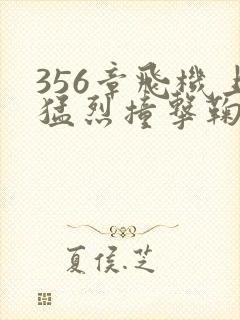 356章飛機上
猛烈撞擊鞠
夏侯.芝